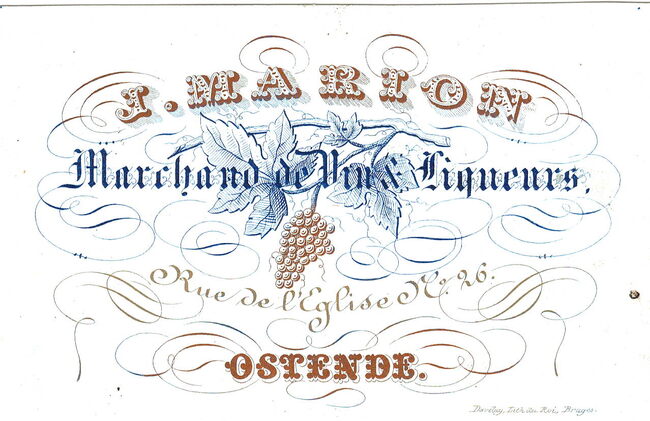 J. MARION
Marchand de Vin & Liqueurs.
Rue de l'Eglise No. 26.
OSTENDE.
Daveluy, Lith. du Roi, Bruges.